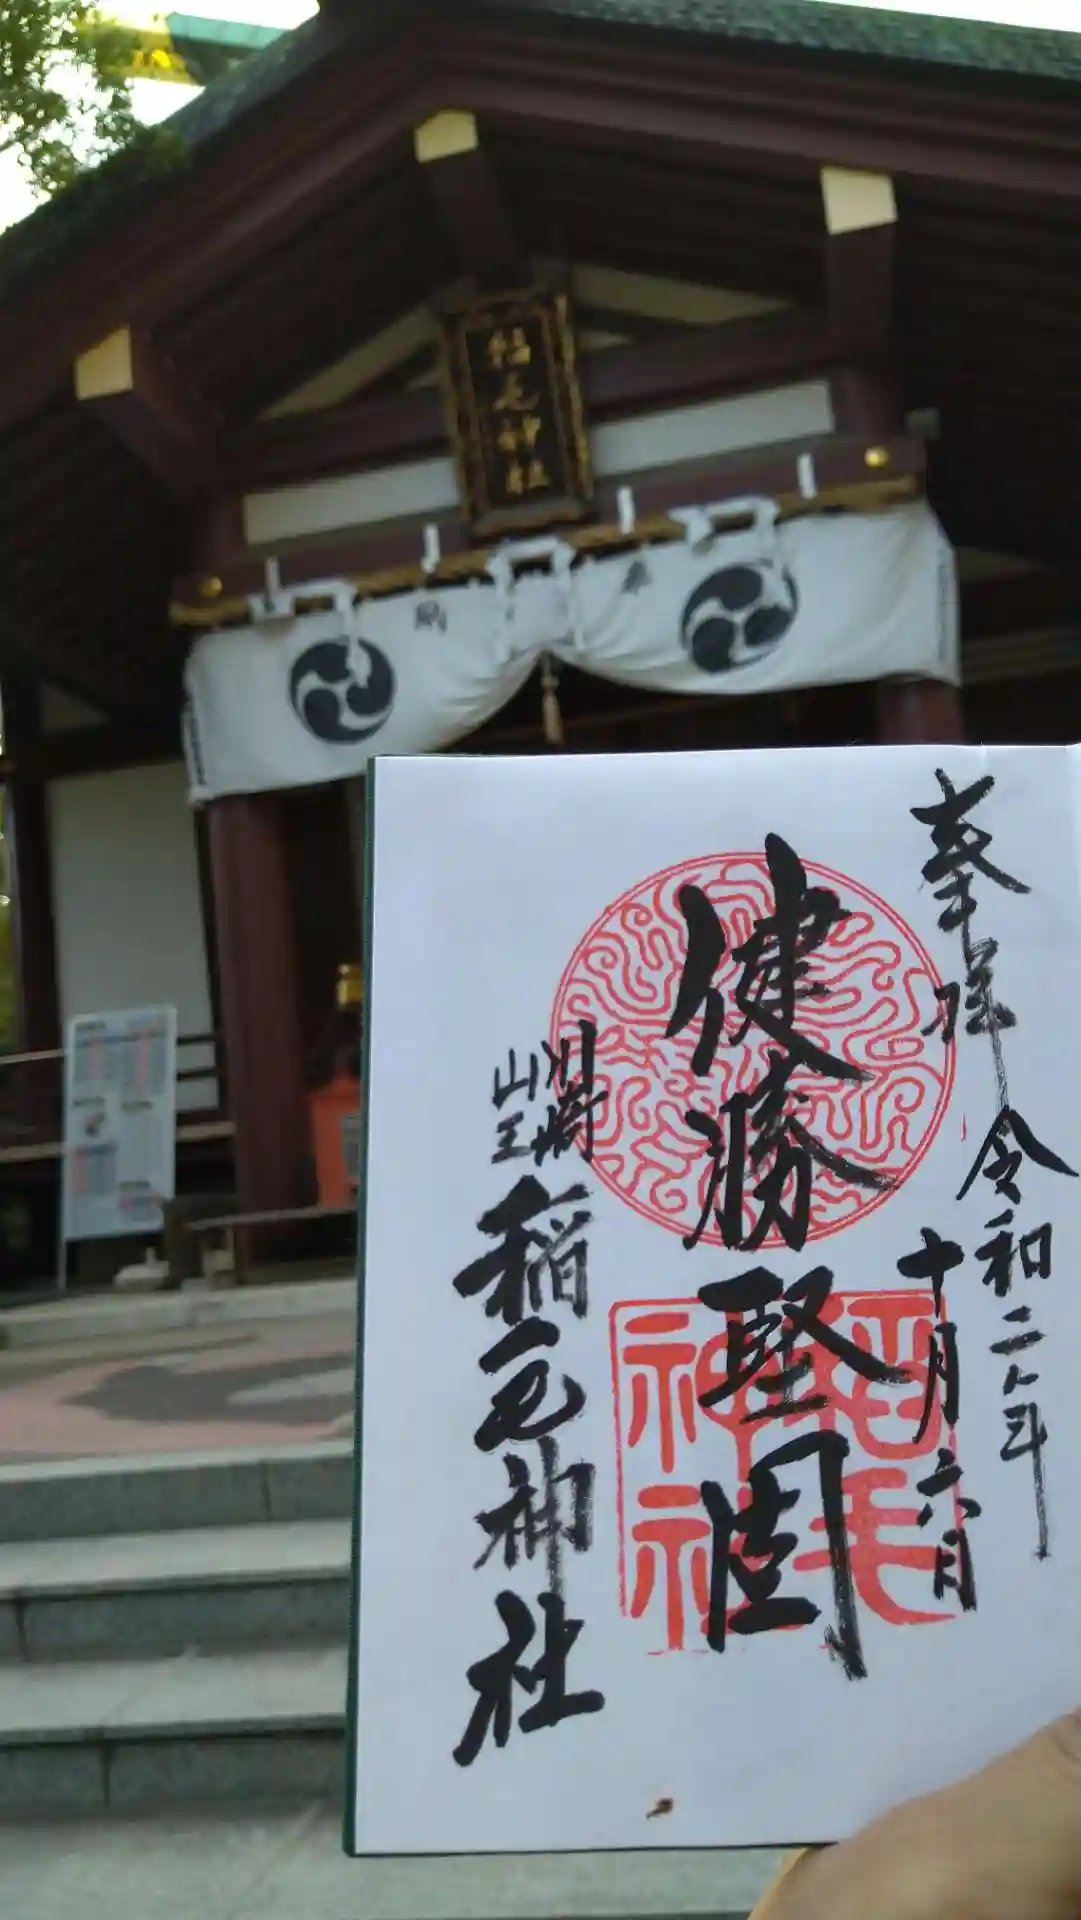 稲毛神社
奉拝
令和二年
十月六日
健勝堅固
川崎
山王
稲毛神社
稲毛
神社